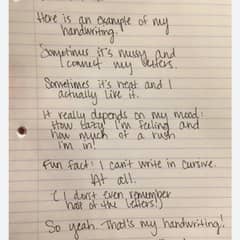 Here is an example of my
handwriting.
Sometimes it's messy and
I connect my letters.
Sometimes it's neat and I
actually like it.
It really depends on my mood:
How lazy I'm feeling and
how much of a rush
I'm in!
Fun fact: I can't write in cursive.
At all.
(I don't even remember
half of the letters!)
So yeah. That's my handwriting!